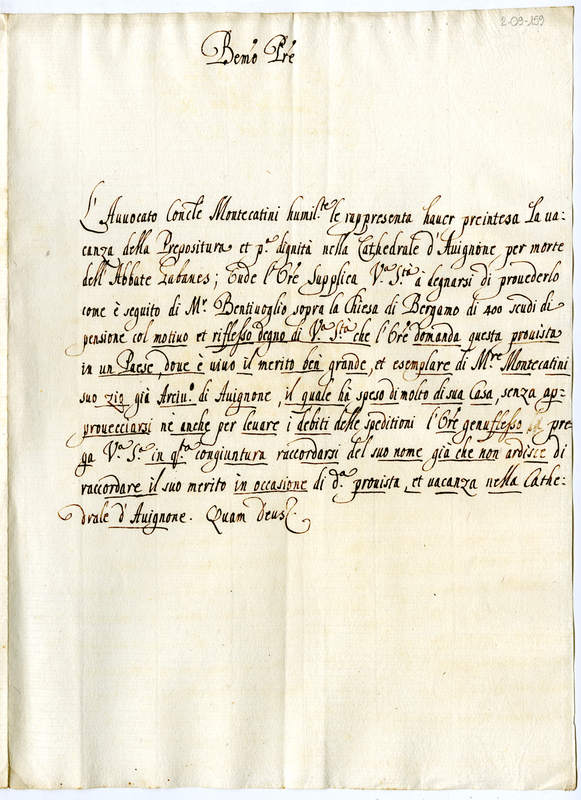 2-09-159
Bẽmo Pre
L'Auuocato Concle Montecatini humil.te le rappresenta hauer preintesa la ua-
canza della Prepositura et p.a dignità nella Cathedrale d'Auignone per morte
dell'Abbate Gabanes; Onde l'Ore Supplica V.a S.tà à degnarsi di prouederlo
come è seguito di M.r Bentiuoglio sopra la Chiesa di Bergamo di 400 scudi di
pensione col motiuo et riflesso degno di V.a S.tà che l'Ore domanda questa prouista
in un Paese, doue è uiuo il merito ben grande, et esemplare di M.re Montecatini
suo zio già Arciu.o di Auignone, il quale hà speso di molto di sua Casa, senza ap-
prouecciarsi nè anche per leuare i debiti delle speditioni l'Ore genuflesso pre
ga V.a S.tà in q.ta congiuntura raccordarsi del suo nome già che non ardisce di
raccordare il suo merito in occasione di d.a prouista, et uacanza nella Cathe-
drale d'Auignone. Quam Deus